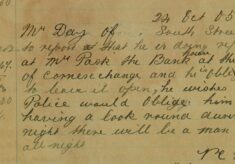 22 Oct 05
Mr Day of South Stree
to report that he is doing repairs
at Mr Pask the Bank at the
of Cornexchange and he is oblig
to leave it open, he wishes
Police would oblige him
having a look round durin
night there will be a man
all night